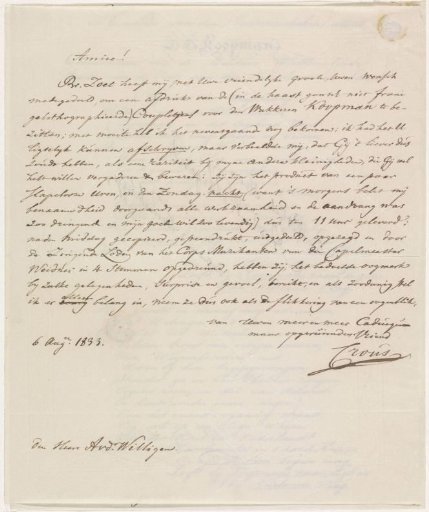 Amice!
Ds. Loet heeft mij, met Uwe vriendelijke groete, Uwen wensch
medegedeeld om een afdruk van de (in de haast gewis niet fraai
gelithographieerde) Coupletjes voor den Wakkeren Koopman te be-
zitten; met moeite heb ik het nevensgaande nog bekomen; ik had het U
ligtelijk kunnen afschryven, maar verbeeldde mij, dat Gij 't liever dus
zoudt hebben, als een rariteit bij myne andere kleinigheden, die Gij wel
hebt willen vergaderen & bewaren. Zij zijn het product van een paar
slapelooze Uren, in den Zondag nacht, (want 's morgens belet mij
benaauwdheid doorgaands alle werkzaamheid en de aandrang was
zoo dringend en mijn zoo levendig) dus ten 11 Uur geleverd,
naden Middag gecopieerd, gesteendrukt, uitgedeeld, opgezegd en door
de zingende Leden van het Corps Muzikanten van de Capelmeester
Weidner in 4 Stemmen opgedeund, hebben zij het beste oogmerk
bij zulke gelegenheden, Surprise en gevoel, bereikt, en als zoodanig stel
ik er eenig belang in, neem ze dus ook als de flikkering van een oogenblik.
van Uwen meer en meer Caducquen
maar opgeruimden Vriend
Crous
6 Augs. 1833.
den Heer A.v.d. Willigen.